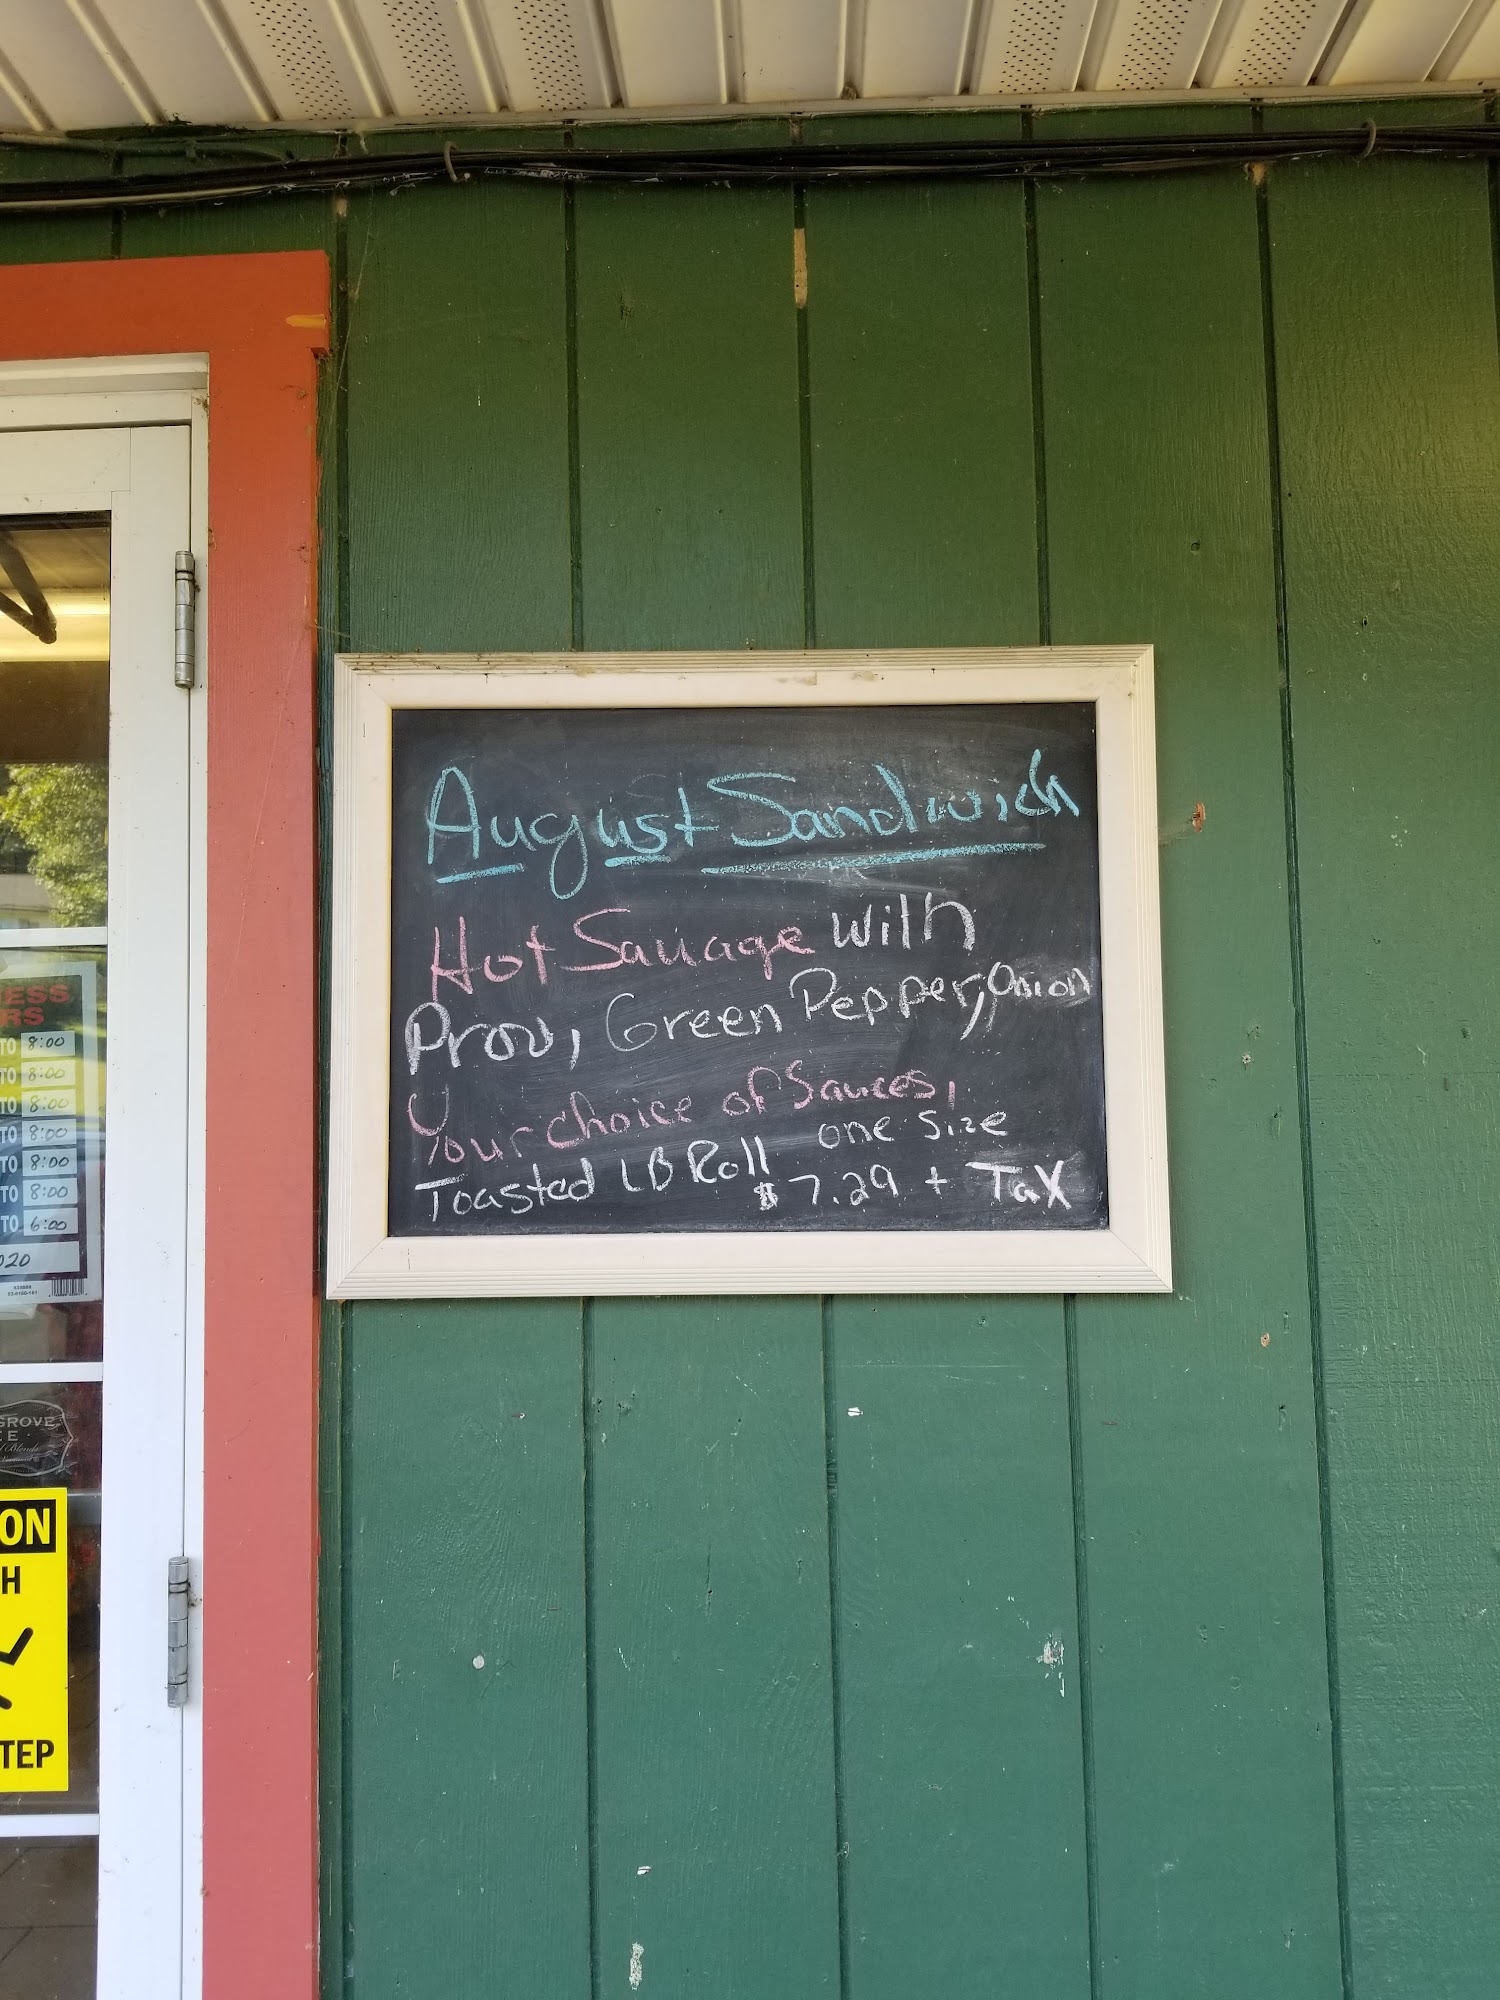 August Sandwich
Hot Sauage with
Prov, Green Pepper, Onion
Your choice of Sauces,
Toasted LB Roll one size
$7.29 + Tax
ESS
RS
TO 8:00
TO 8:00
TO 8:00
TO 8:00
TO 8:00
TO 8:00
TO 6:00
020
GROVE
EE
ON
H
TEP